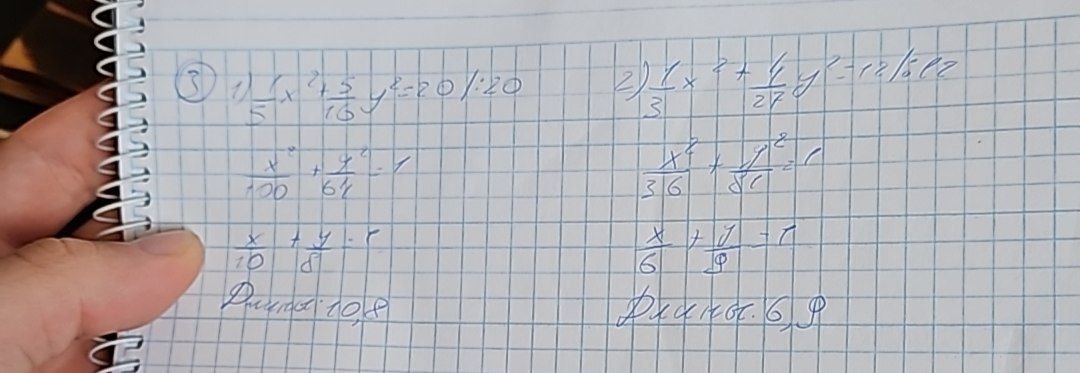 ③ 1) 1/5 x² + 5/16 y² = 20 /:20
x²/100 + y²/64 = 1
x/10 + y/8 = 1
Длины: 10,8
2) 1/3 x² + 4/27 y² = 12 /:12
x²/36 + y²/81 = 1
x/6 + y/9 = 1
Длины: 6,9